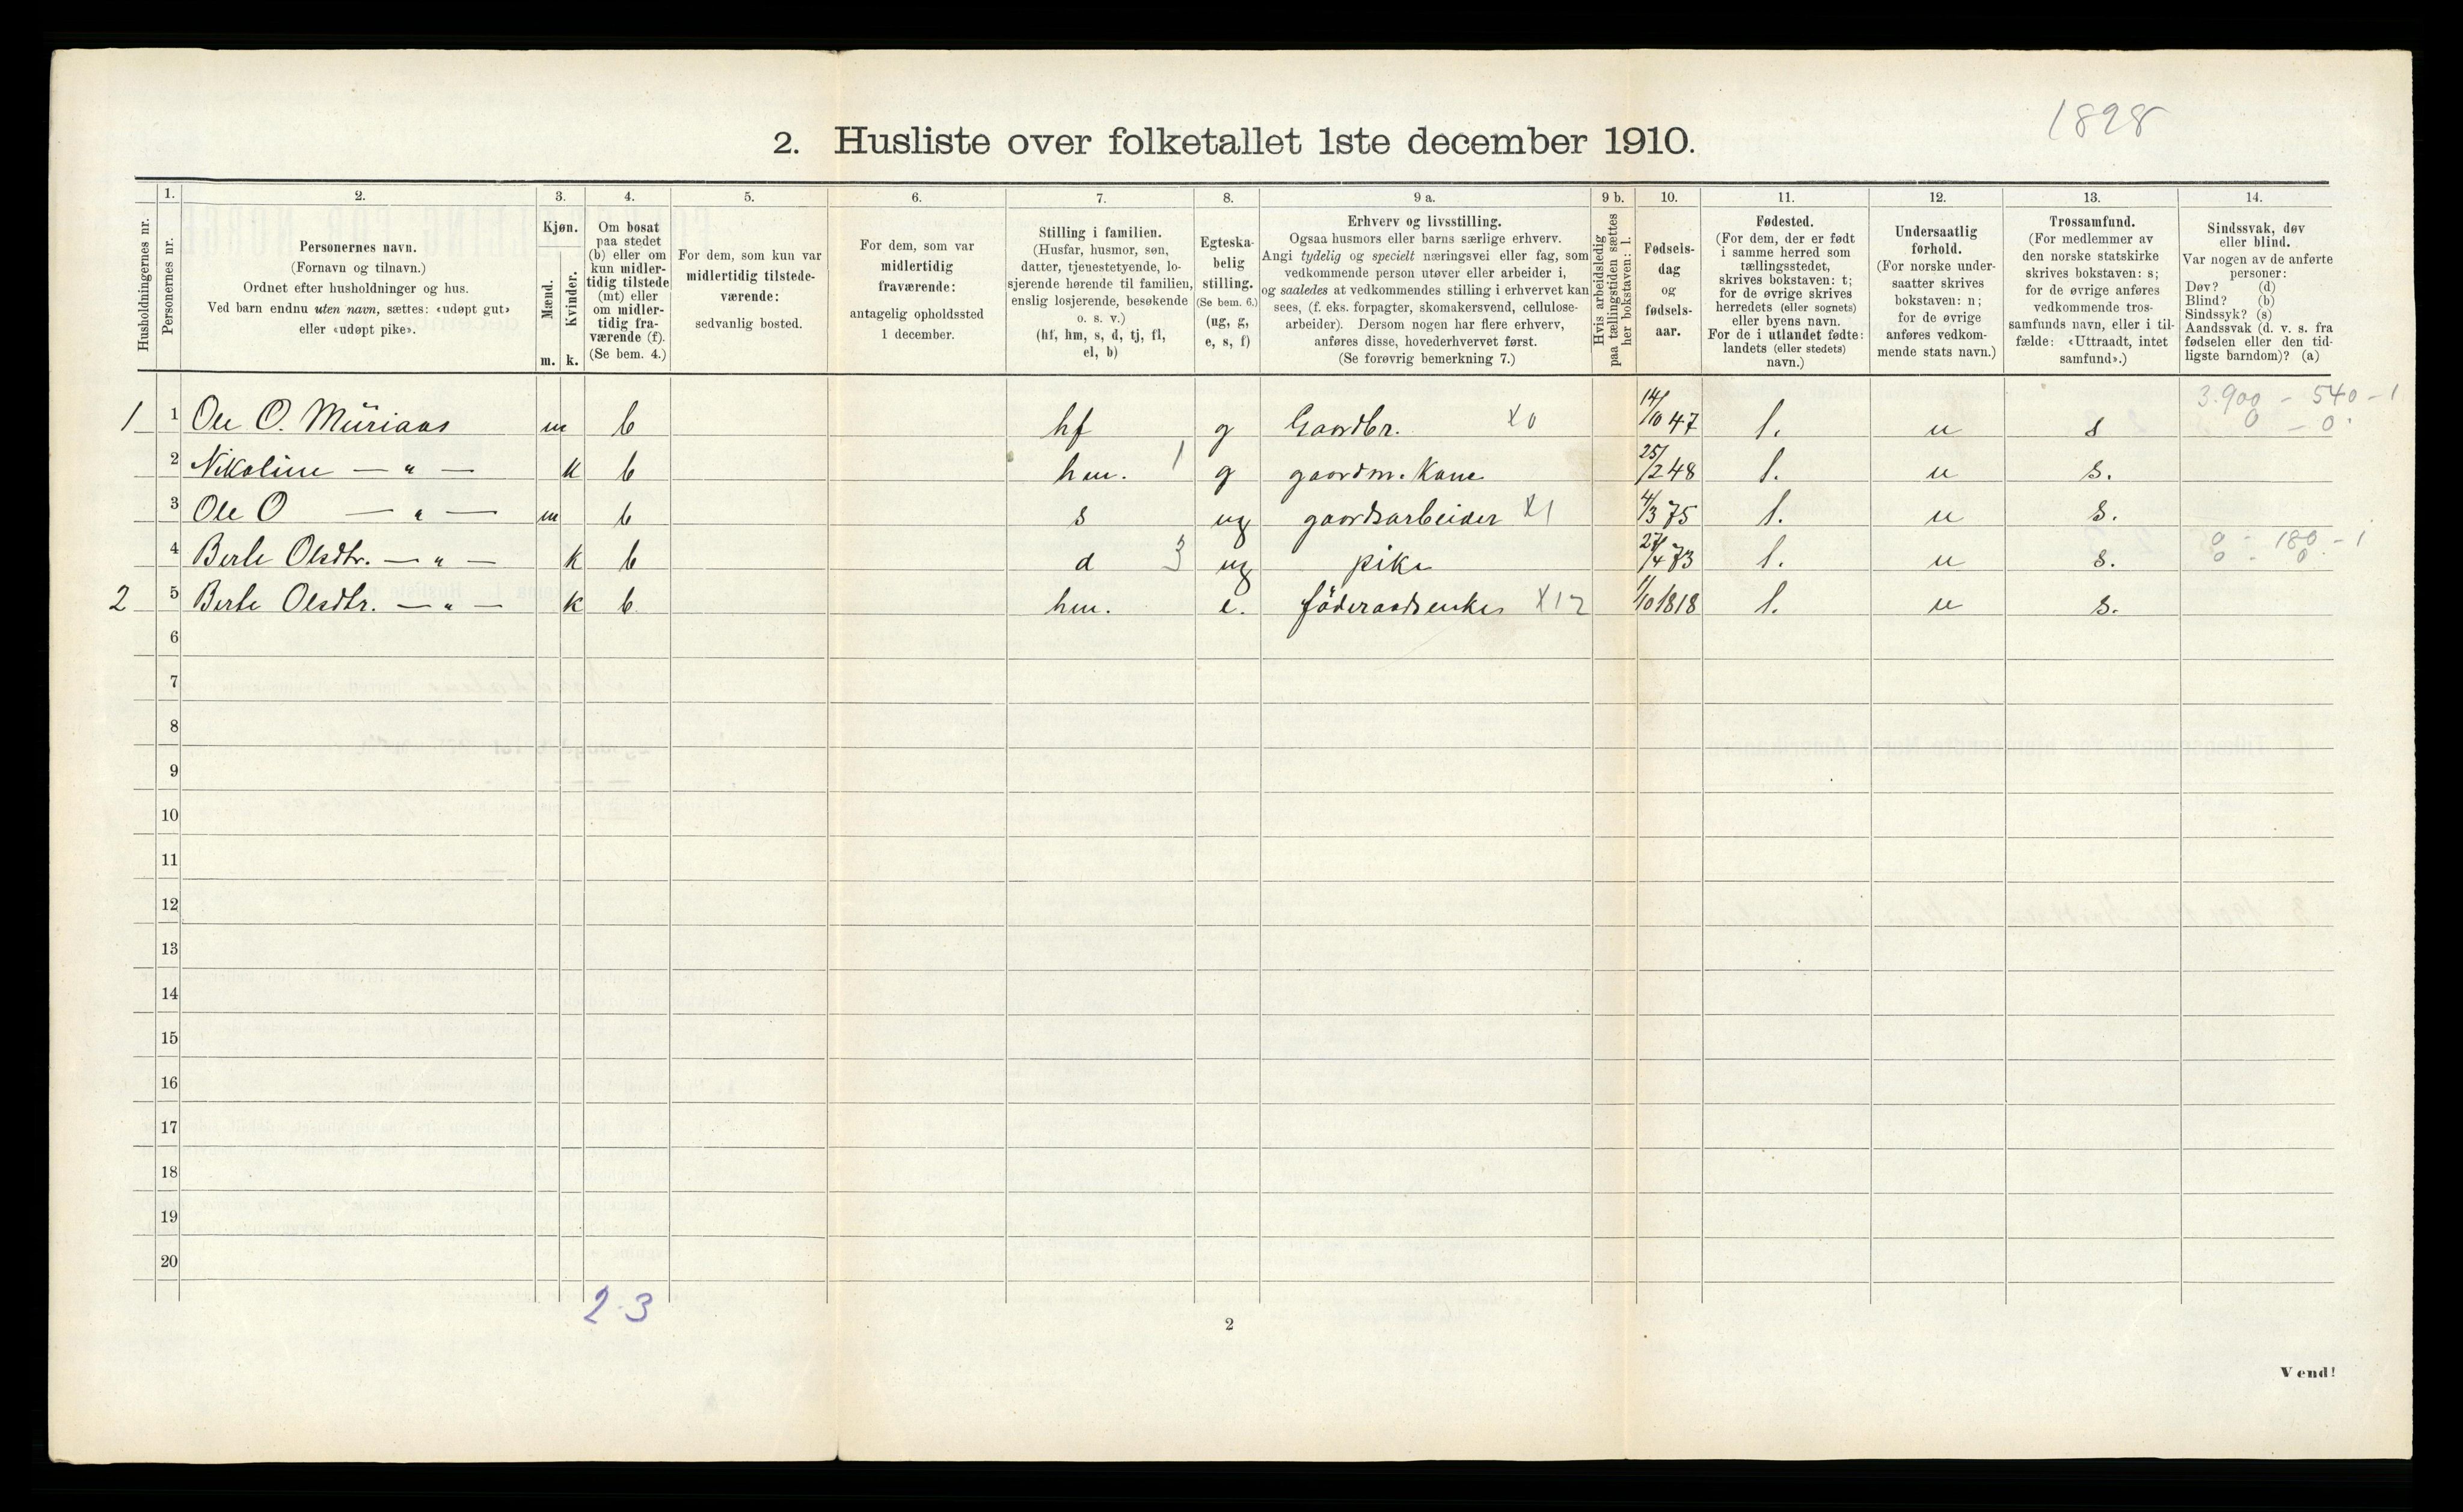 1898
2. Husliste over folketallet 1ste december 1910.
Husholdningernes nr.
1.
Personernes nr.
2.
Personernes navn.
(Fornavn og tilnavn.)
Ordnet efter husholdninger og hus.
Ved barn endnu uten navn, sættes: «udøpt gut»
eller «udøpt pike».
3.
Kjøn.
Mænd.
m.
Kvinder.
k.
4.
Om bosat
paa stedet
(b) eller om
kun midler-
tidig tilstede
(mt) eller
om midler-
tidig fra-
værende (f).
(Se bem. 4.)
5.
For dem, som kun var
midlertidig tilstede-
værende:
sedvanlig bosted.
6.
For dem, som var
midlertidig
fraværende:
antagelig opholdssted
1 december.
7.
Stilling i familien.
(Husfar, husmor, søn,
datter, tjenestetyende, lo-
sjerende hørende til familien,
enslig losjerende, besøkende
o. s. v.)
(hf, hm, s, d, tj, fl,
el, b)
8.
Egteska-
belig
stilling.
(Se bem. 6.)
(ug, g,
e, s, f)
9 a.
Erhverv og livsstilling.
Ogsaa husmors eller barns særlige erhverv.
Angi tydelig og specielt næringsvei eller fag, som
vedkommende person utøver eller arbeider i,
og saaledes at vedkommendes stilling i erhvervet kan
sees, (f. eks. forpagter, skomakersvend, cellulose-
arbeider). Dersom nogen har flere erhverv,
anføres disse, hovederhvervet først.
(Se forøvrig bemerkning 7.)
9 b.
Hvis arbeidsledig
paa tællingstiden sættes
her bokstaven: l.
10.
Fødsels-
dag
og
fødsels-
aar.
11.
Fødested.
(For dem, der er født
i samme herred som
tællingsstedet,
skrives bokstaven: t;
for de øvrige skrives
herredets (eller sognets)
eller byens navn.
For de i utlandet fødte:
landets (eller stedets)
navn.)
12.
Undersaatlig
forhold.
(For norske under-
saatter skrives
bokstaven: n;
for de øvrige
anføres vedkom-
mende stats navn.)
13.
Trossamfund.
(For medlemmer av
den norske statskirke
skrives bokstaven: s;
for de øvrige anføres
vedkommende tros-
samfunds navn, eller i til-
fælde: «Uttraadt, intet
samfund».)
14.
Sindssvak, døv
eller blind.
Var nogen av de anførte
personer:
Døv? (d)
Blind? (b)
Sindssyk? (s)
Aandssvak (d. v. s. fra
fødselen eller den tid-
ligste barndom)? (a)
3.900 - 540 - 1
0 - 0
1 1 Ole O. Müriaas m b hf g Gaardbr. X0 14/10 47 t. n s
2 Nikoline — „ — k b hm. 1 g gaardm. Kone 25/2 48 t. n s.
3 Ole O — „ — m b s ug gaardsarbeider X1 4/3 75 t. n s.
4 Berte Olsdtr. — „ — k b d 3 ug pike 27/4 73 t. n s. 0 - 180 - 1
0 - 0
2 5 Berte Olsdtr. — „ — k b hm. e. föderaadsenke X12 1/10 1818 t. n s.
6
7
8
9
10
11
12
13
14
15
16
17
18
19
20
2-3
2
Vend!